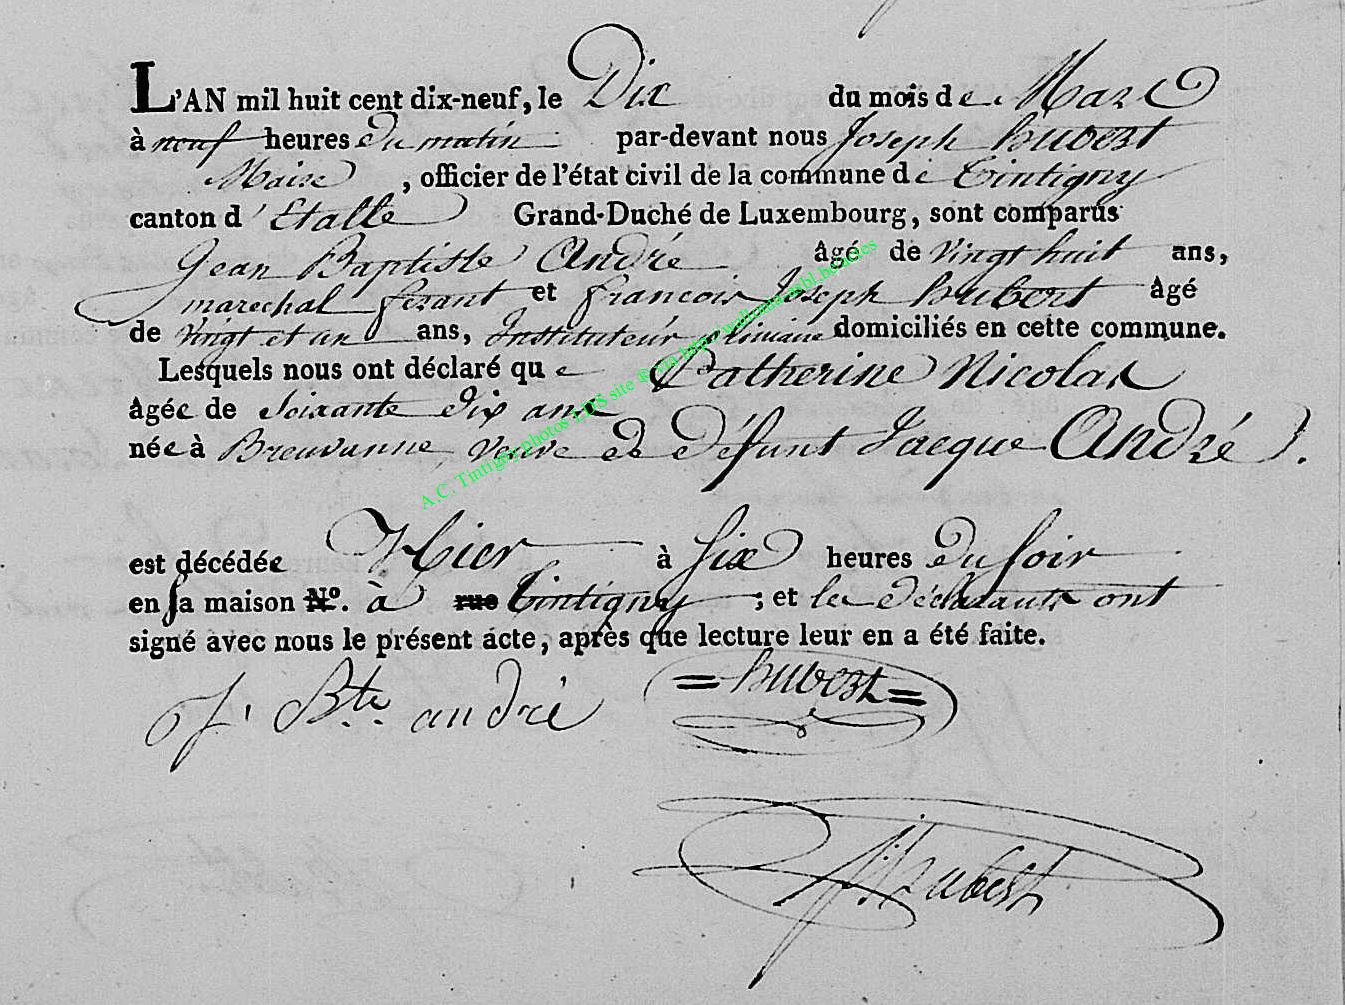 L'AN mil huit cent dix-neuf, le Dix du mois de Mars
à neuf heures du matin par-devant nous Joseph hubert
Maire, officier de l'état civil de la commune de Tintigny
canton d'Etalle Grand-Duché de Luxembourg, sont comparus
Jean Baptiste André âgé de vingt huit ans,
marechal ferant et francois Joseph hubert âgé
de vingt et un ans, Instituteur primaire domiciliés en cette commune.
Lesquels nous ont déclaré que Catherine Nicolas
âgée de soixante dix ans
née à Breuvanne, veuve de défunt Jacque André.
est décédée hier à six heures du soir
en sa maison N°. à rue tintigny ; et les déclarants ont
signé avec nous le présent acte, après que lecture leur en a été faite.
J. Bte. andré = hubert =
J. hubert
A.C. Tintigny photos LDS site ® via http://